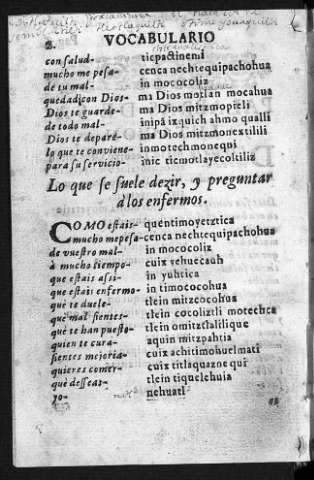 2. VOCABULARIO
con salud- ticpactinemi
mucho me pesa- cenca nechtequipachohua
de tu mal- in mococoliz
quedad con Dios- ma Dios motlan mocahua
Dios te guarde- ma Dios mitzmopieli
de todo mal- inipā izquich ahmo qualli
Dios te deparé- ma Dios mitzmonextilili
lo que te conviene- inmotechmonequi
para su servicio- inic ticmotlayecoltiliz
Lo que se suele dezir, y preguntar
à los enfermos.
COMO estais- quentimoyetztica
mucho mepesa- cenca nechtequipachohua
de vuestro mal- in mococoliz
à mucho tiempo- cuix vehuecauh
que estais assi- in yuhtica
que estais enfermo- in timococohua
què te duele- tlein mitzcocohua
què mal sientes- tlein cocoliztli motechca
què te han puesto- tlein omitztlalilique
quien te cura- aquin mitzpahtia
sientes mejoria- cuix achitimohuelmati
quieres comer- cuix titlaquazne qui
què desseas- tlein tiquelehuia
yo- nehuatl